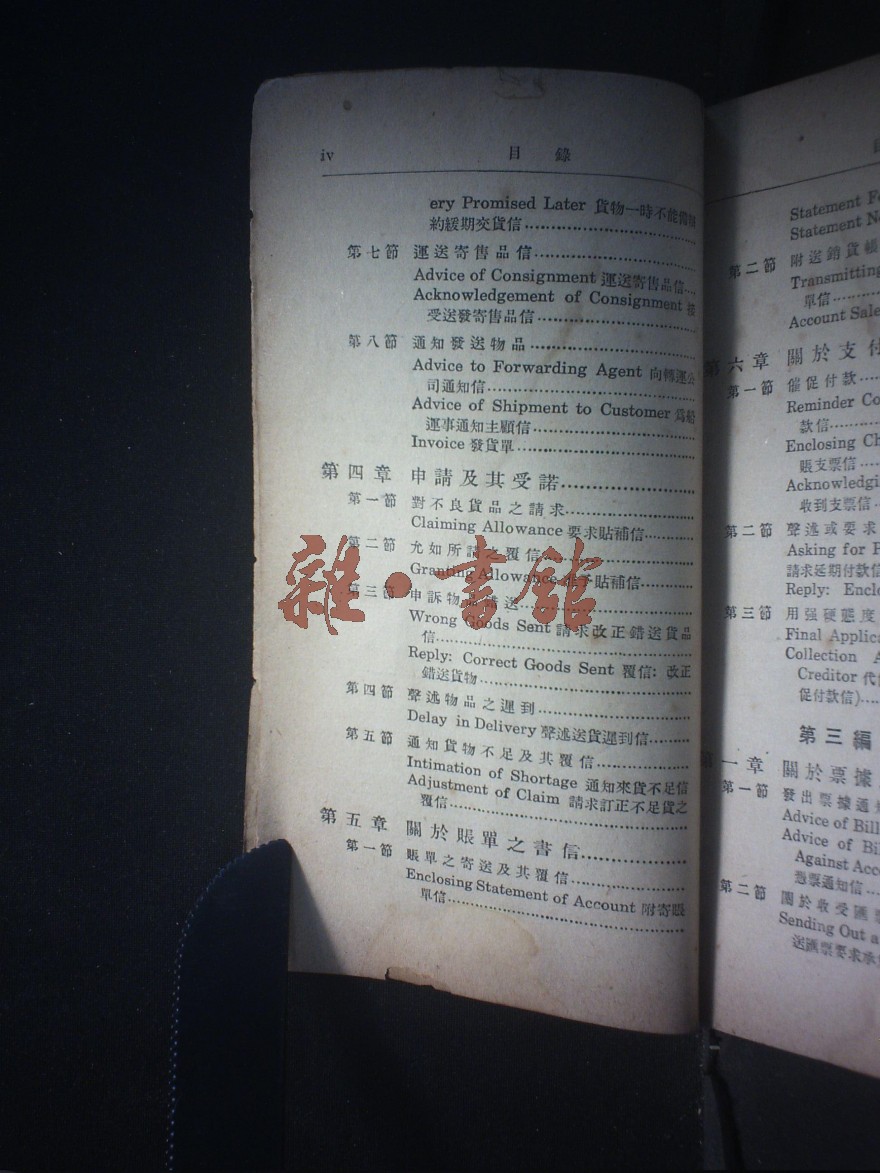 iv 目 錄
ery Promised Later 貨物一時不能
約緩期交貨信
第七節 運送寄售品信
Advice of Consignment 運送寄售品信
Acknowledgement of Consignment 接
受送發寄售品信
第八節 通知發送物品
Advice to Forwarding Agent 向轉運公
司通知信
Advice of Shipment to Customer 爲船
運事通知主顧信
Invoice 發貨單
第四章 申請及其受諾
第一節 對不良貨品之請求
Claiming Allowance 要求貼補信
第二節 允如所請之覆信
Granting Allowance 准予貼補信
第三節 申訴物品錯送
Wrong Goods Sent 請求改正錯送貨品
信
Reply: Correct Goods Sent 覆信：改正
錯送貨物
第四節 聲述物品之遲到
Delay in Delivery 聲述送貨遲到信
第五節 通知貨物不足及其覆信
Intimation of Shortage 通知來貨不足信
Adjustment of Claim 請求訂正不足貨之
覆信
第五章 關於賬單之書信
第一節 賬單之寄送及其覆信
Enclosing Statement of Account 附寄賬
單信
雜·書館
Statement
Statement
第二節 附送銷貨帳
Transmitting
單信
Account Sale
第六章 關於支付
第一節 催促付款
Reminder
款信
Enclosing
賬支票信
收到支票信
第二節 聲述或要求
Asking for
請求延期付款信
Reply:
第三節 用强硬態度
Final
Collection
Creditor 代
促付款信)
第三編
一章 關於票據
第一節 發出票據通
Advice of Bill
Advice of
Against
憑票通知信
第二節 關於收受匯
Sending Out
送匯票要求承